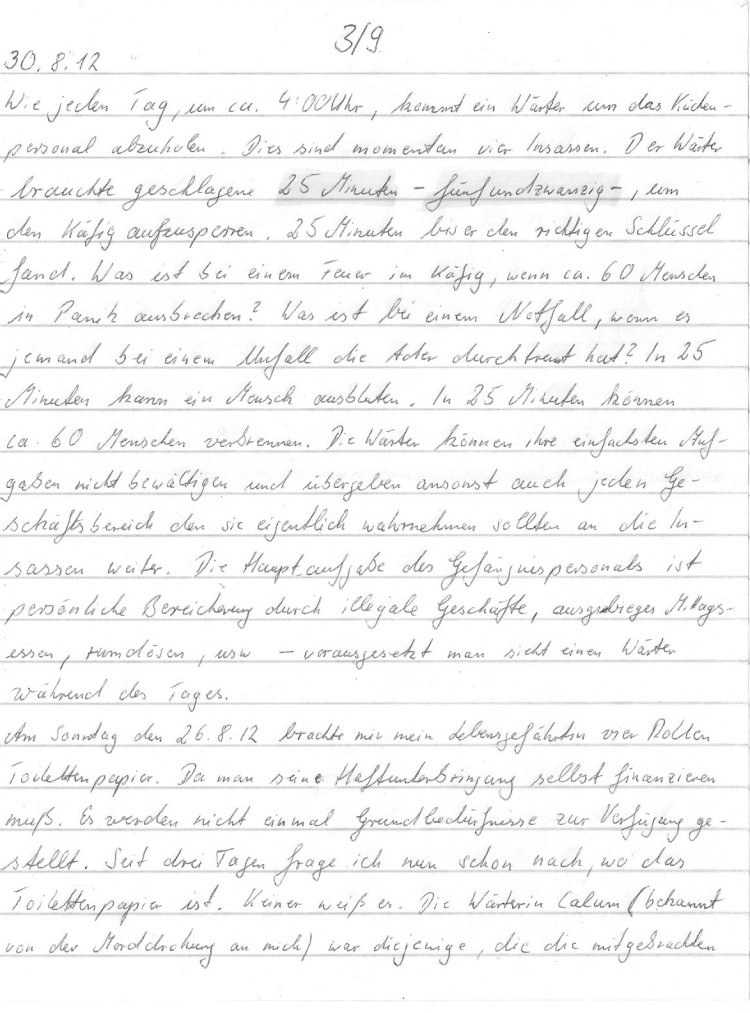 3/9
30.8.12
Wie jeden Tag, um ca. 4:00 Uhr, kommt ein Wärter um das Küchen-
personal abzuholen. Dies sind momentan vier Insassen. Der Wärter
brauchte geschlagene 25 Minuten - fünfundzwanzig -, um
den Käfig aufzusperren. 25 Minuten bis er den richtigen Schlüssel
fand. Was ist bei einem Feuer im Käfig, wenn ca. 60 Menschen
in Panik ausbrechen? Was ist bei einem Notfall, wenn es
jemand bei einem Unfall die Ader durchtrennt hat? In 25
Minuten kann ein Mensch ausbluten. In 25 Minuten können
ca. 60 Menschen verbrennen. Die Wärter können ihre einfachsten Auf-
gaben nicht bewältigen und übergeben ansonst auch jeden Ge-
schäftsbereich den sie eigentlich wahrnehmen sollten an die In-
sassen weiter. Die Hauptaufgabe des Gefängnispersonals ist
persönliche Bereicherung durch illegale Geschäfte, ausgiebieges Mittags-
essen, rumdösen, usw - vorausgesetzt man sieht einen Wärter
während des Tages.
Am Sonntag den 26.8.12 brachte mir mein Lebensgefährtin vier Rollen
Toilettenpapier. Da man seine Haftunterbringung selbst finanzieren
muß. Es werden nicht einmal Grundbedürfnisse zur Verfügung ge-
stellt. Seit drei Tagen frage ich nun schon nach, wo das
Toilettenpapier ist. Keiner weiß es. Die Wärterin Calum (bekannt
von der Morddrohung an mich) war diejenige, die die mitgebrachten